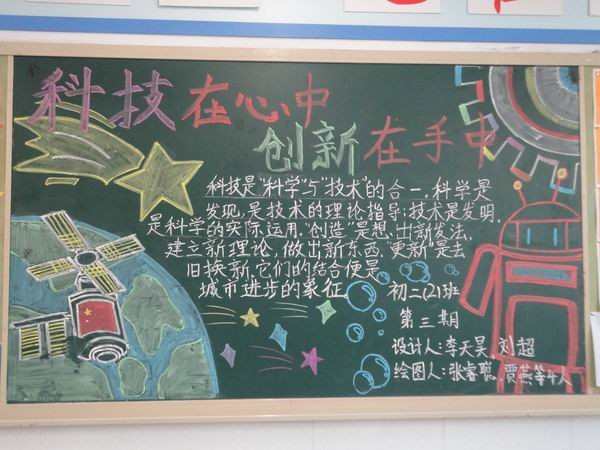 科技在心中
创新在手中
科技是"科学"与"技术"的合一.科学是
发现,是技术的理论指导;技术是发明.
是科学的实际运用."创造"是想.出新发法,
建立新理论,做出新东西."更新"是去
旧换新.它们的结合便是
城市进步的象征.
初二(2)班
第三期
设计人:李天昊、刘超
绘图人:张睿聪、贾燕等4人